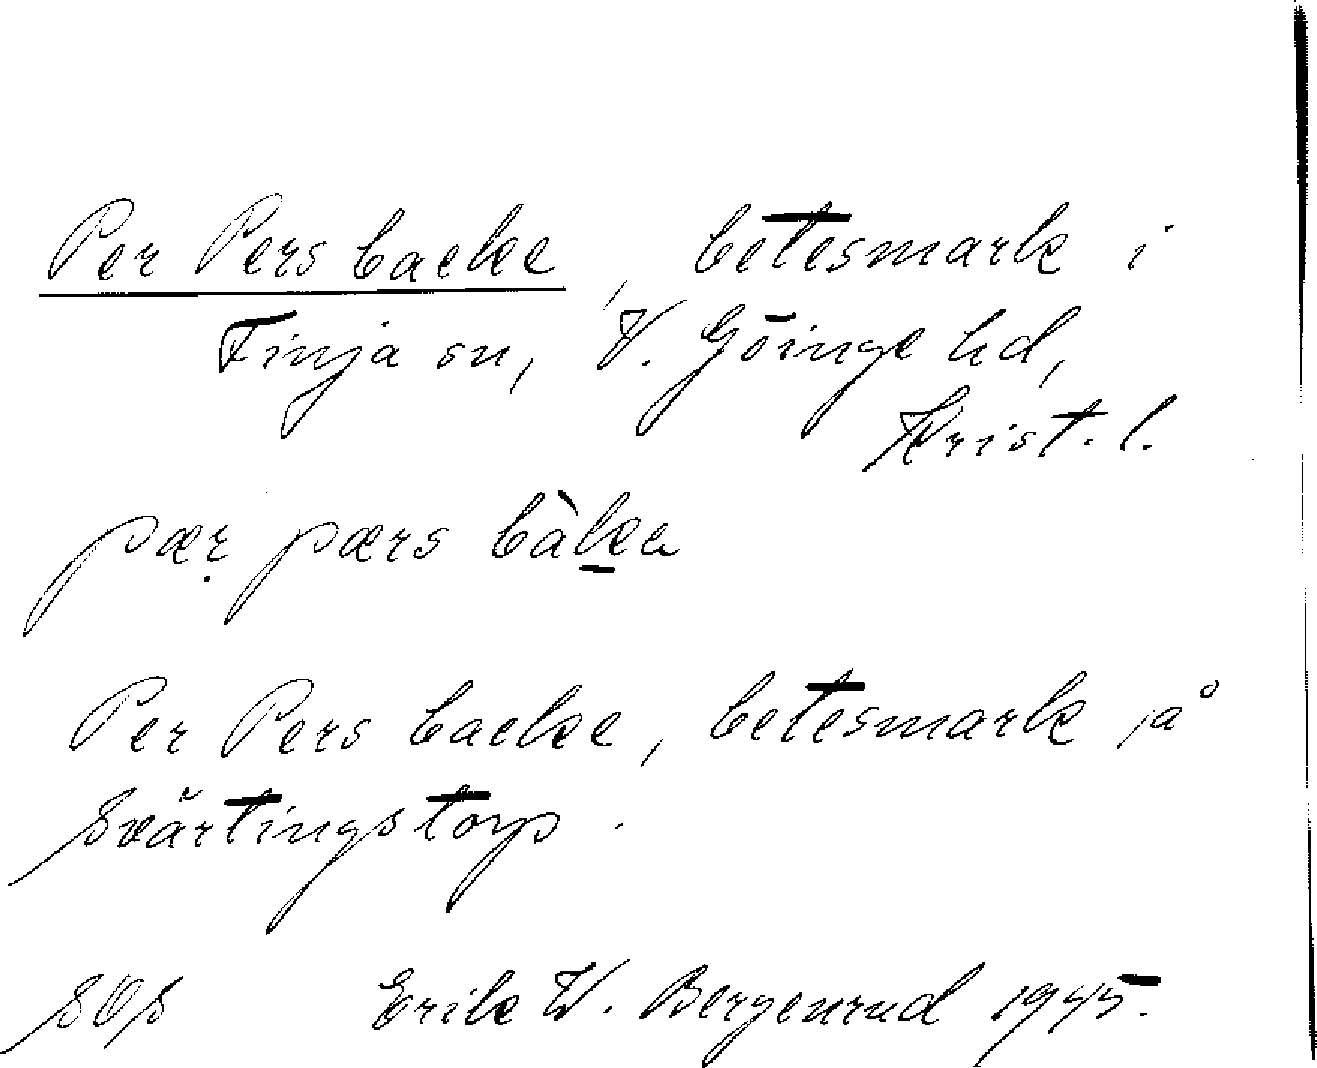 Per Pers backe, betesmark i
Finja sn, V. Göinge hd,
Krist. l.
pær̤ pærs bàk̲a
Per Pers backe, betesmark på
Svärtingstorp.
SOS Erik W. Bergenrud 1945.